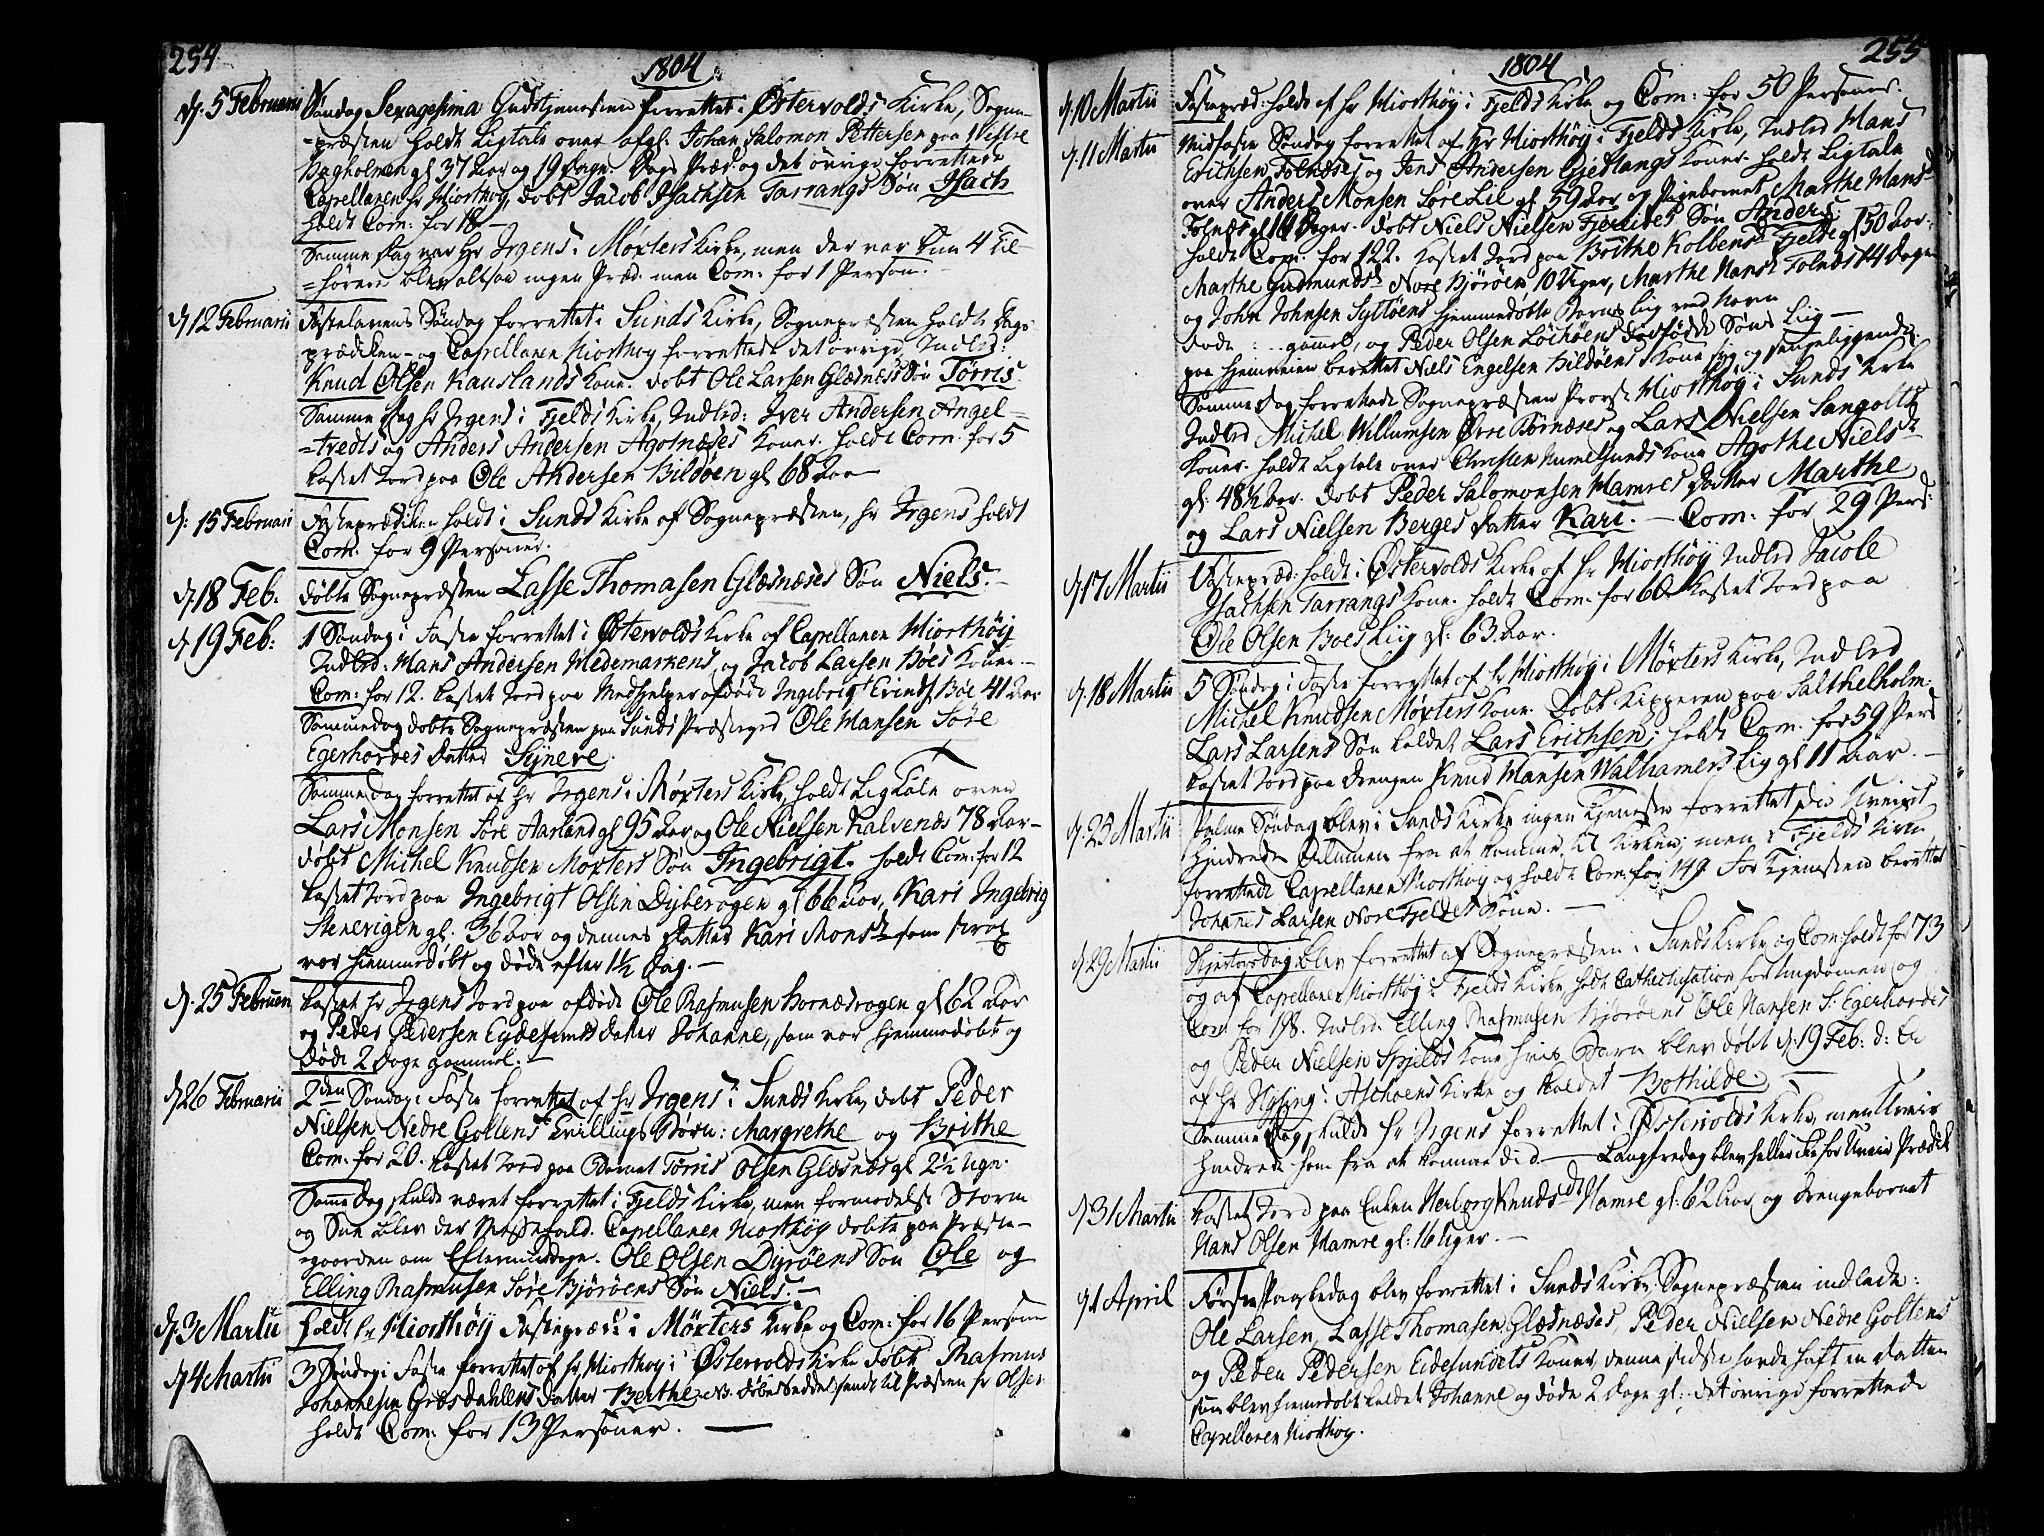 254
1804
d. 5 Februarii Søndag Sexagesima Gudstjenesten forrettet i Østervolds Kirke, Sogne-
-præsten holdt Ligtale over afg: Johan Salomon Pettersen paa Vestre
Bagholmen gl 37 Aar og 19 Dage. Dags Præd: og det øvrige forrettede
Capellanen hr Hiorthøy, døbt Jacob Isachsen Tarrangs Søn Isach
holdt Com: for 18 -
Samme Dag var hr Irgens i Møxters Kirke, men der var kun 4 Til-
=hørere blev altsaa ingen Præd: men Com: for 1 Person. -
d 12 Februarii Fastelavens Søndag forrettet i Sunds Kirke, Sognepræsten holdt Dags
prædiken - og Capellanen Hiorthøy forrettede det øvrige, Indled:
Knud Olsen Kauslands Kone. døbt Ole Larsen Glæsnæss Søn Tørris.
Samme Dag hr Irgens i Fjelds Kirke, Indled: Iver Andersen Angel-
=tvedts og Anders Andersen Agotnæses Koner. holdt Com. for 5
kastet Jord paa Ole Andersen Bildøen gl 68 Aar
d: 15 Februarii Fasteprædiken holdt i Sunds Kirke af Sognepræsten, hr Irgens holdt
Com: for 9 Personer.
d 18 Feb: døbte Sognepræsten Lasse Thomasen Glæsnæses Søn Niels. -
d 19 Feb: 1 Søndag i Faste forrettet i Østervolds Kirke af Capellanen Hiorthøy
Indled: Hans Andersen Medemarkens og Jacob Larsen Bøes Koner -
Com: for 12. kastet Jord paa Medhjelper afdøde Ingebrigt Erinds: Bøe 41 Aar
Sammedag døbte Sognepræsten paa Sunds Præstegrd Ole Hansen Søre
Egerhordes Datter Synneve.
Samme Dag forrettet af hr Irgens i Møxters Kirke, holdt Ligtale over
Lars Monsen Søre Aarland gl 95 Aar og Ole Nielsen Kalvenæs 78 Aar -
døbt Michel Knudsen Moxters Søn Ingebrigt. holdt Com: for 12
kastet Jord paa Ingebrigt Olsen Dyberogen gl 66 Aar, Kari Ingebrig
Stenevigen gl. 36 Aar og dennes Datter Kari Monsdr som strax
var hiemmedøbt og døde efter 1½ Dag. -
d. 25 Februarii kastet hr Irgens Jord paa afdøde Ole Rasmusen Hornæsvogen gl 62 Aar
og Peder Pedersen Eydesunds datter Johanne, som var hjemmedøbt og
døde 2 Dage gammel. -
d 26 Februarii 2den Søndag i Faste forrettet af hr Irgens i Sunds Kirke, døbt Peder
Nielsen Nedre Goltens Tvillings Børn: Margrethe og Brithe
Com: for 20. kastet Jord paa Barnet Tørris Olsen Glæsnæs gl 2½ Ugr.
Samme Dag skulde været forrettet i Fjelds Kirke, men formedelst Storm
og Snee blev der Messefald. Capellanen Hiorthøy døbte paa Præste-
=gaarden om Eftermiddagen. Ole Olsen Dyrøens Søn Ole og
Elling Rasmusen Søre Bjørøens Søn Niels. -
d 3 Martii holdt hr Hiorthøy Fastepræd: i Møxters Kirke og Com: for 16 Personer
d 4 Martii 3 Søndag i Faste forrettet af hr Hiorthøy i Østervolds Kirke døbt Rasmus
Johannesen Grøsdahlens Datter Berthe, NB. døbes Seddel sendt til Præsten hr Olsen
holdt Com: for 13 Personer. -
255
1804
d 10 Martii Fastepræd: holdt af hr Hiorthøy i Fjelds Kirke og Com: for 50 Personer.
d. 11 Martii Midfaste Søndag forrettet af hr Hiorthøy i Fjelds Kirke, Indled Hans
Erichsen Tolnæses og Jens Andersen Giertlangs Koner. holdt Ligtale
over Anders Monsen Søre Lie gl 59 Aar, og Pigebarnet Marthe Hansd.
Tolnæs gl 14 Dager. døbt Niels Nielsen Fjerretes Søn Anders.
holdt Com. for 122. kastet Jord paa Brithe Kolbensd. Fjelde gl 50 Aar.
Marthe Gudmundsd Nore Bjørøen 10 Uger, Marthe Hansd Tolnæs 14 dager
og John Johnsen Syltøens hjemmedøbte Barns lig ved Navn
døde : . . gammel, og Peder Olsen Løchøens dødfødde Søns Liig -
paa Hjemveien berettet Niels Engelsen Bildøens Kone syg og sengeliggende.
Samme Dag forrettede Sognepræsten Provst Hiorthøy i Sunds Kirke
Indled Michel Willumsen Øvre Børnæses og Lars Nielsen Sangolts
Koner. holdt Ligtale over Christen Nummelsunds Kone Agothe Nielsdr
gl: 48½ Aar. døbt Peder Salomonsen Hamres Datter Marthe
og Lars Nielsen Berges Datter Kari. - Com: for 29 Pers:
d 17 Martii Fastepræd: holdt i Østervolds Kirke af hr Hiorthøy Indled Jacob
Isachsen Tarrangs Kone. holdt Com: for 60. kastet Jord paa
Ole Olsen Boes Liig gl: 63 Aar.
d. 18 Martii 5 Søndag i Faste forrettet af hr Hiorthøy i Møxters Kirke, Indled
Michel Knudsen Møxters Kone. Døbt Kipperen paa Salthelholm
Lars Larsens Søn kaldet Lars Erichsen; holdt Com. for 59 Pers
kastet Jord paa drengen Knud Hansen Walhamers Lig gl 11 Aar. -
d 25 Martii Palme Søndag blev i Sunds Kirke ingen Tjeneste forrettet da Uveiret
hindrede Almuen fra at komme til Kirken; men i Fjelds Kirke
forrettede Capellanen Hiorthøy og holdt Com: for 149. Før Tjenesten berettet
Johannes Larsen Nore Fjeldes Kone. -
d 29 Martii Skjertorsdag blev forrettet af Sognepræsten i Sunds Kirke og Com: holdt for 73
og af Capellanen Hiorthøy i Fjelds Kirke, holdt Cathechisation for Ungdommen og
Com for 198. Indled. Elling Rasmusen Bjørøens Ole Hansen S: Egerhordes
og Peder Nielsen Spjelds Kone hvis Barn blev døbt d. 19 Feb: d: A
af hr Nyling i Aschøens Kirke og kaldet Bothilde. -
Samme Dag skulde hr Irgens forrettet i Østervolds Kirke, men Uveir
hindrede ham fra at komme did. - Langfredag blev heller ikke for Uveir Prædik
d 31 Martii kastet Jord paa Enken Herborg Knudsdr Hamre gl: 62 Aar og drengebarnet
Hans Olsen Hamre gl: 16 Uger. -
d 1 April Første Paaskedag blev forrettet i Sunds Kirke, Sognepræsten indlede:
Ole Larsen, Lasse Thomasen Glæsnæses, Peder Nielsen Nedre Goltens
og Peder Pedersen Eidesundets Koner, denne sidste havde haft en Datter
som blev hiemedøbt kaldet Johanne og døde 2 Dage gl:. det øvrige forrettede
Capellanen Hiorthøy.